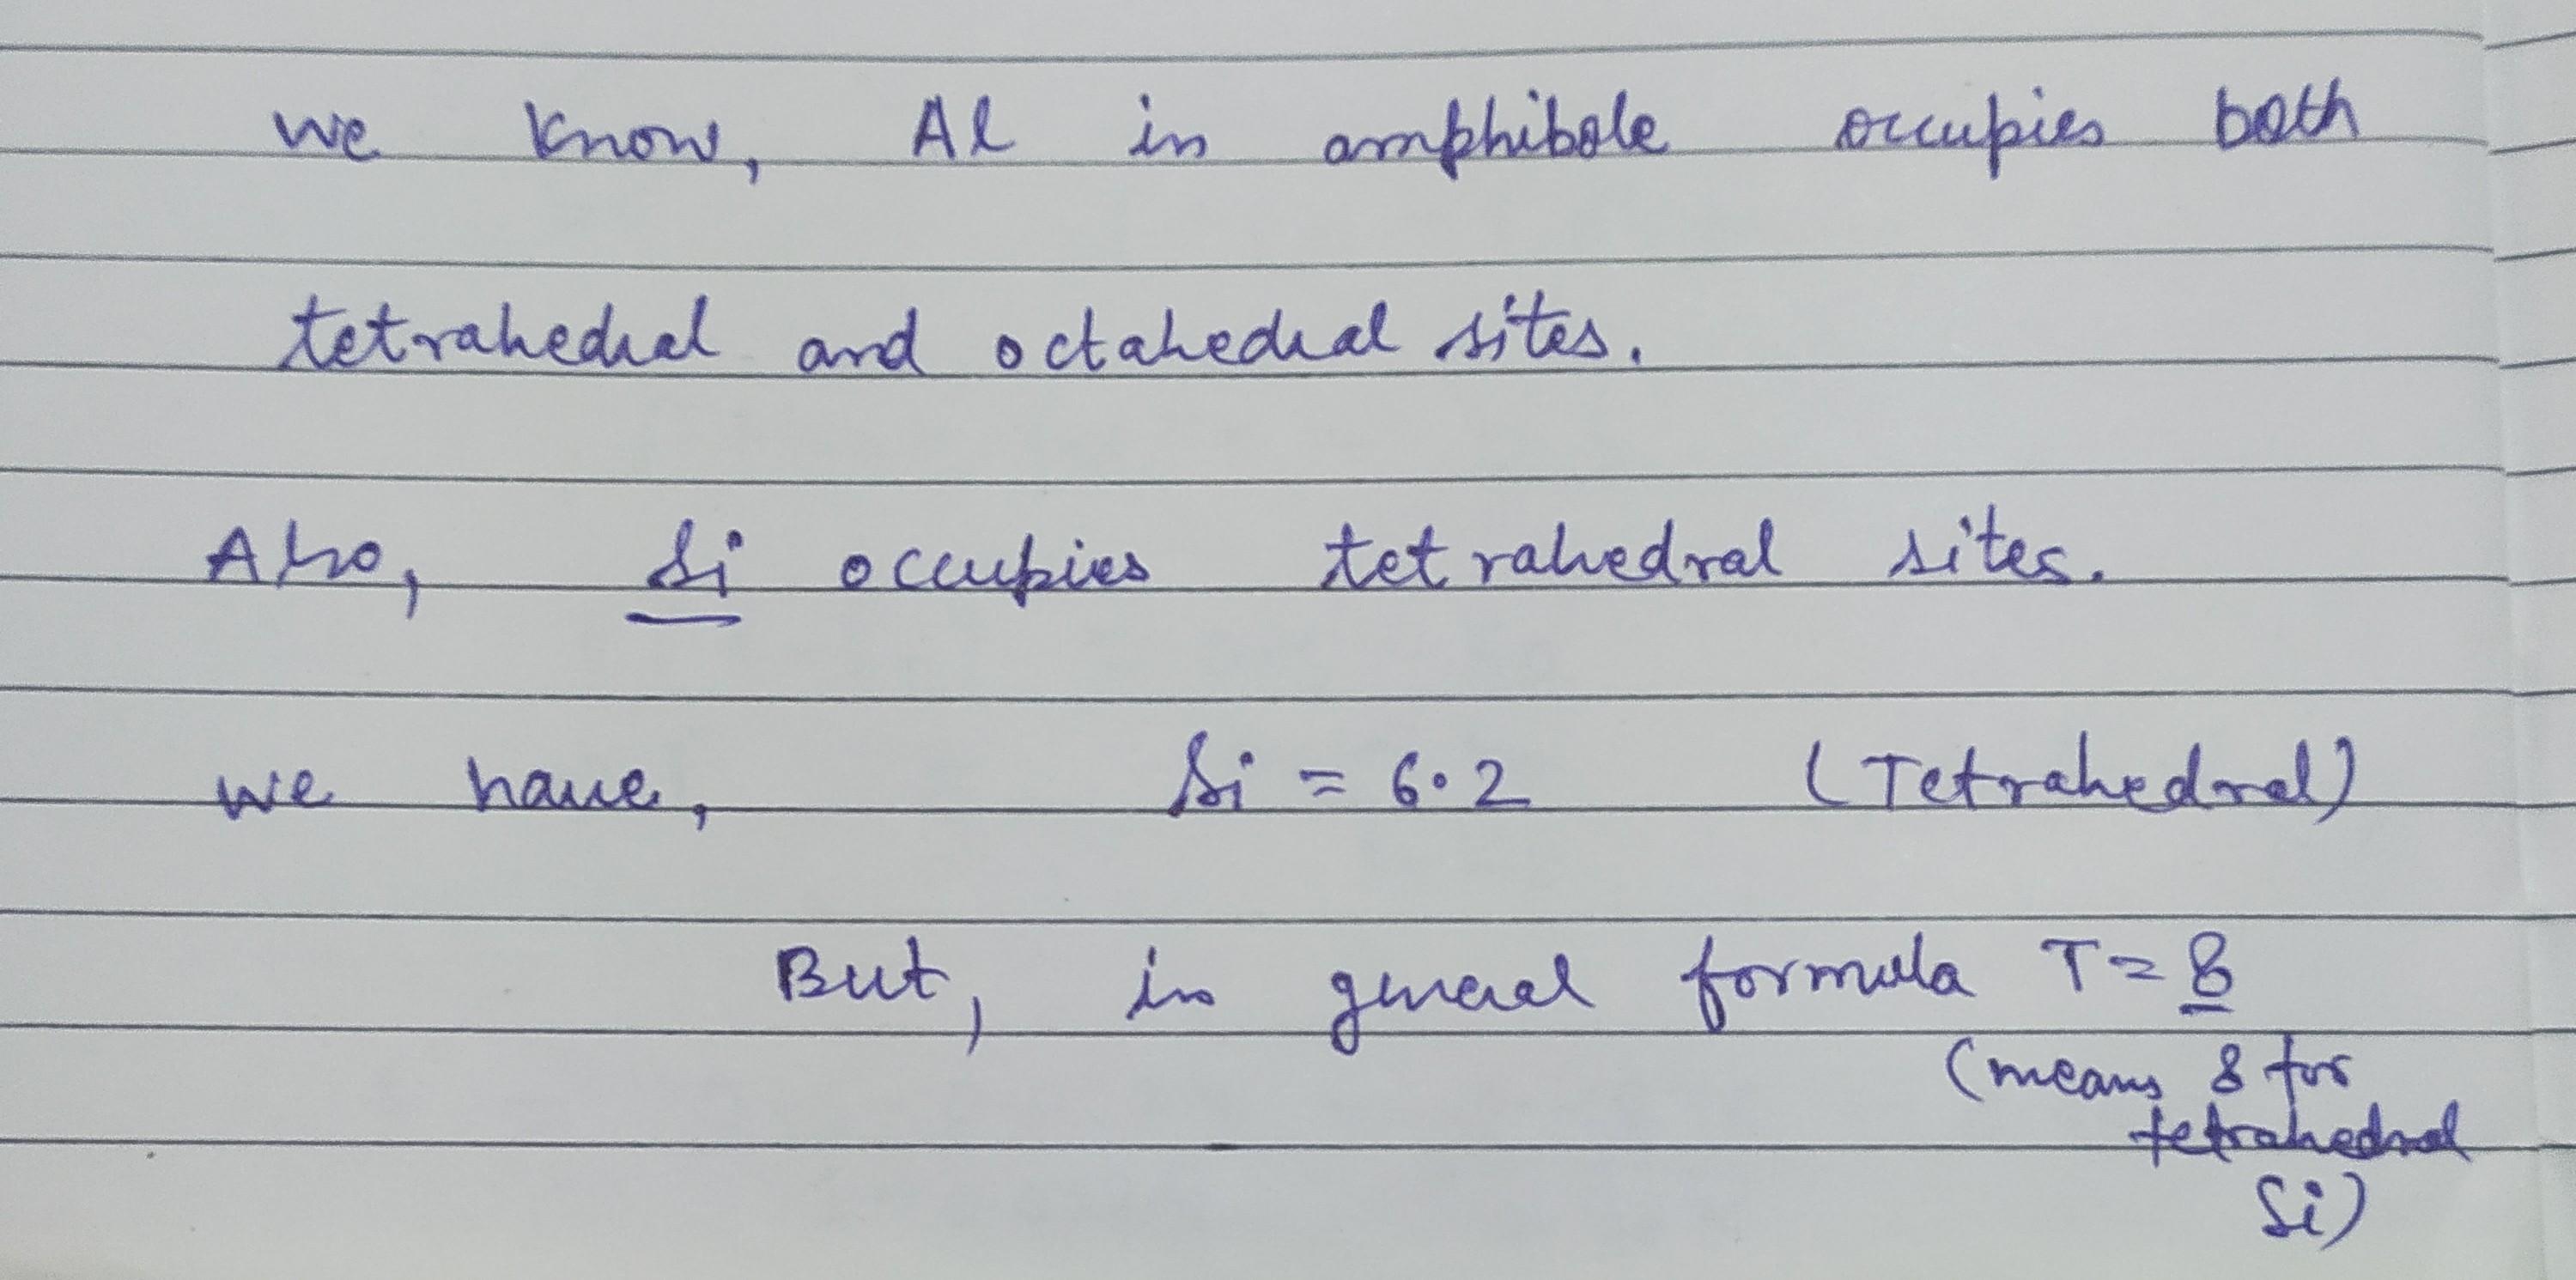 we know, Al in amphibole occupies both
tetrahedral and octahedral sites.
Also, Si occupies tetrahedral sites.
we have, Si = 6.2 (Tetrahedral)
But, in general formula T = 8
(means 8 for
tetrahedral
Si)